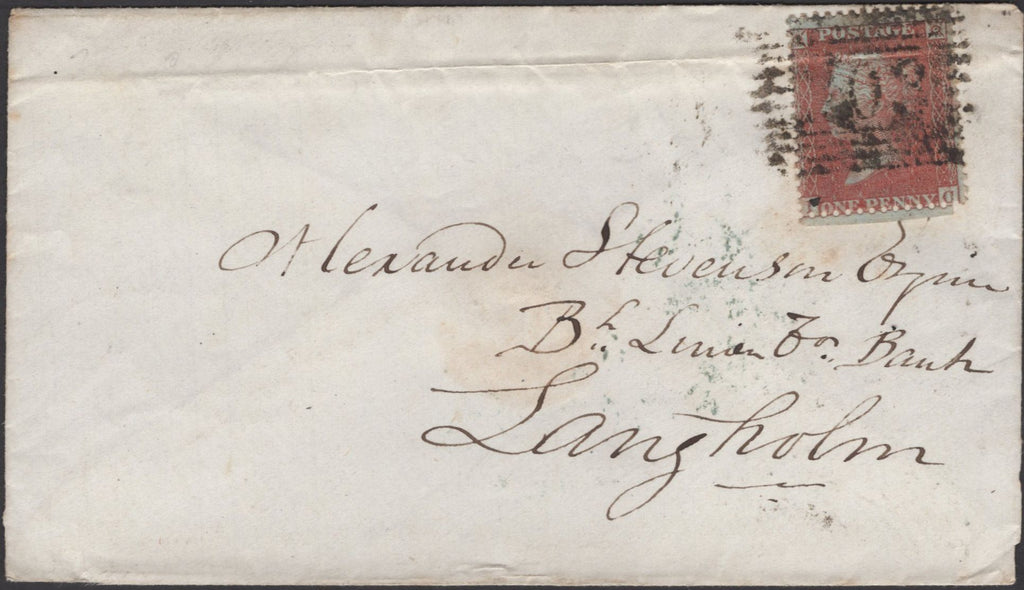 POSTAGE
ONE PENNY
C
Alexander Stevenson Esquire
Bh. Linen Co. Bank
Langholm